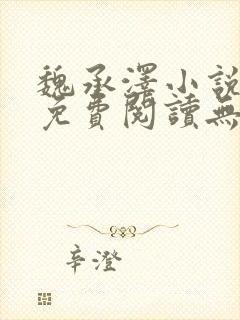 魏承澤小說
免費閱讀無
辛澄